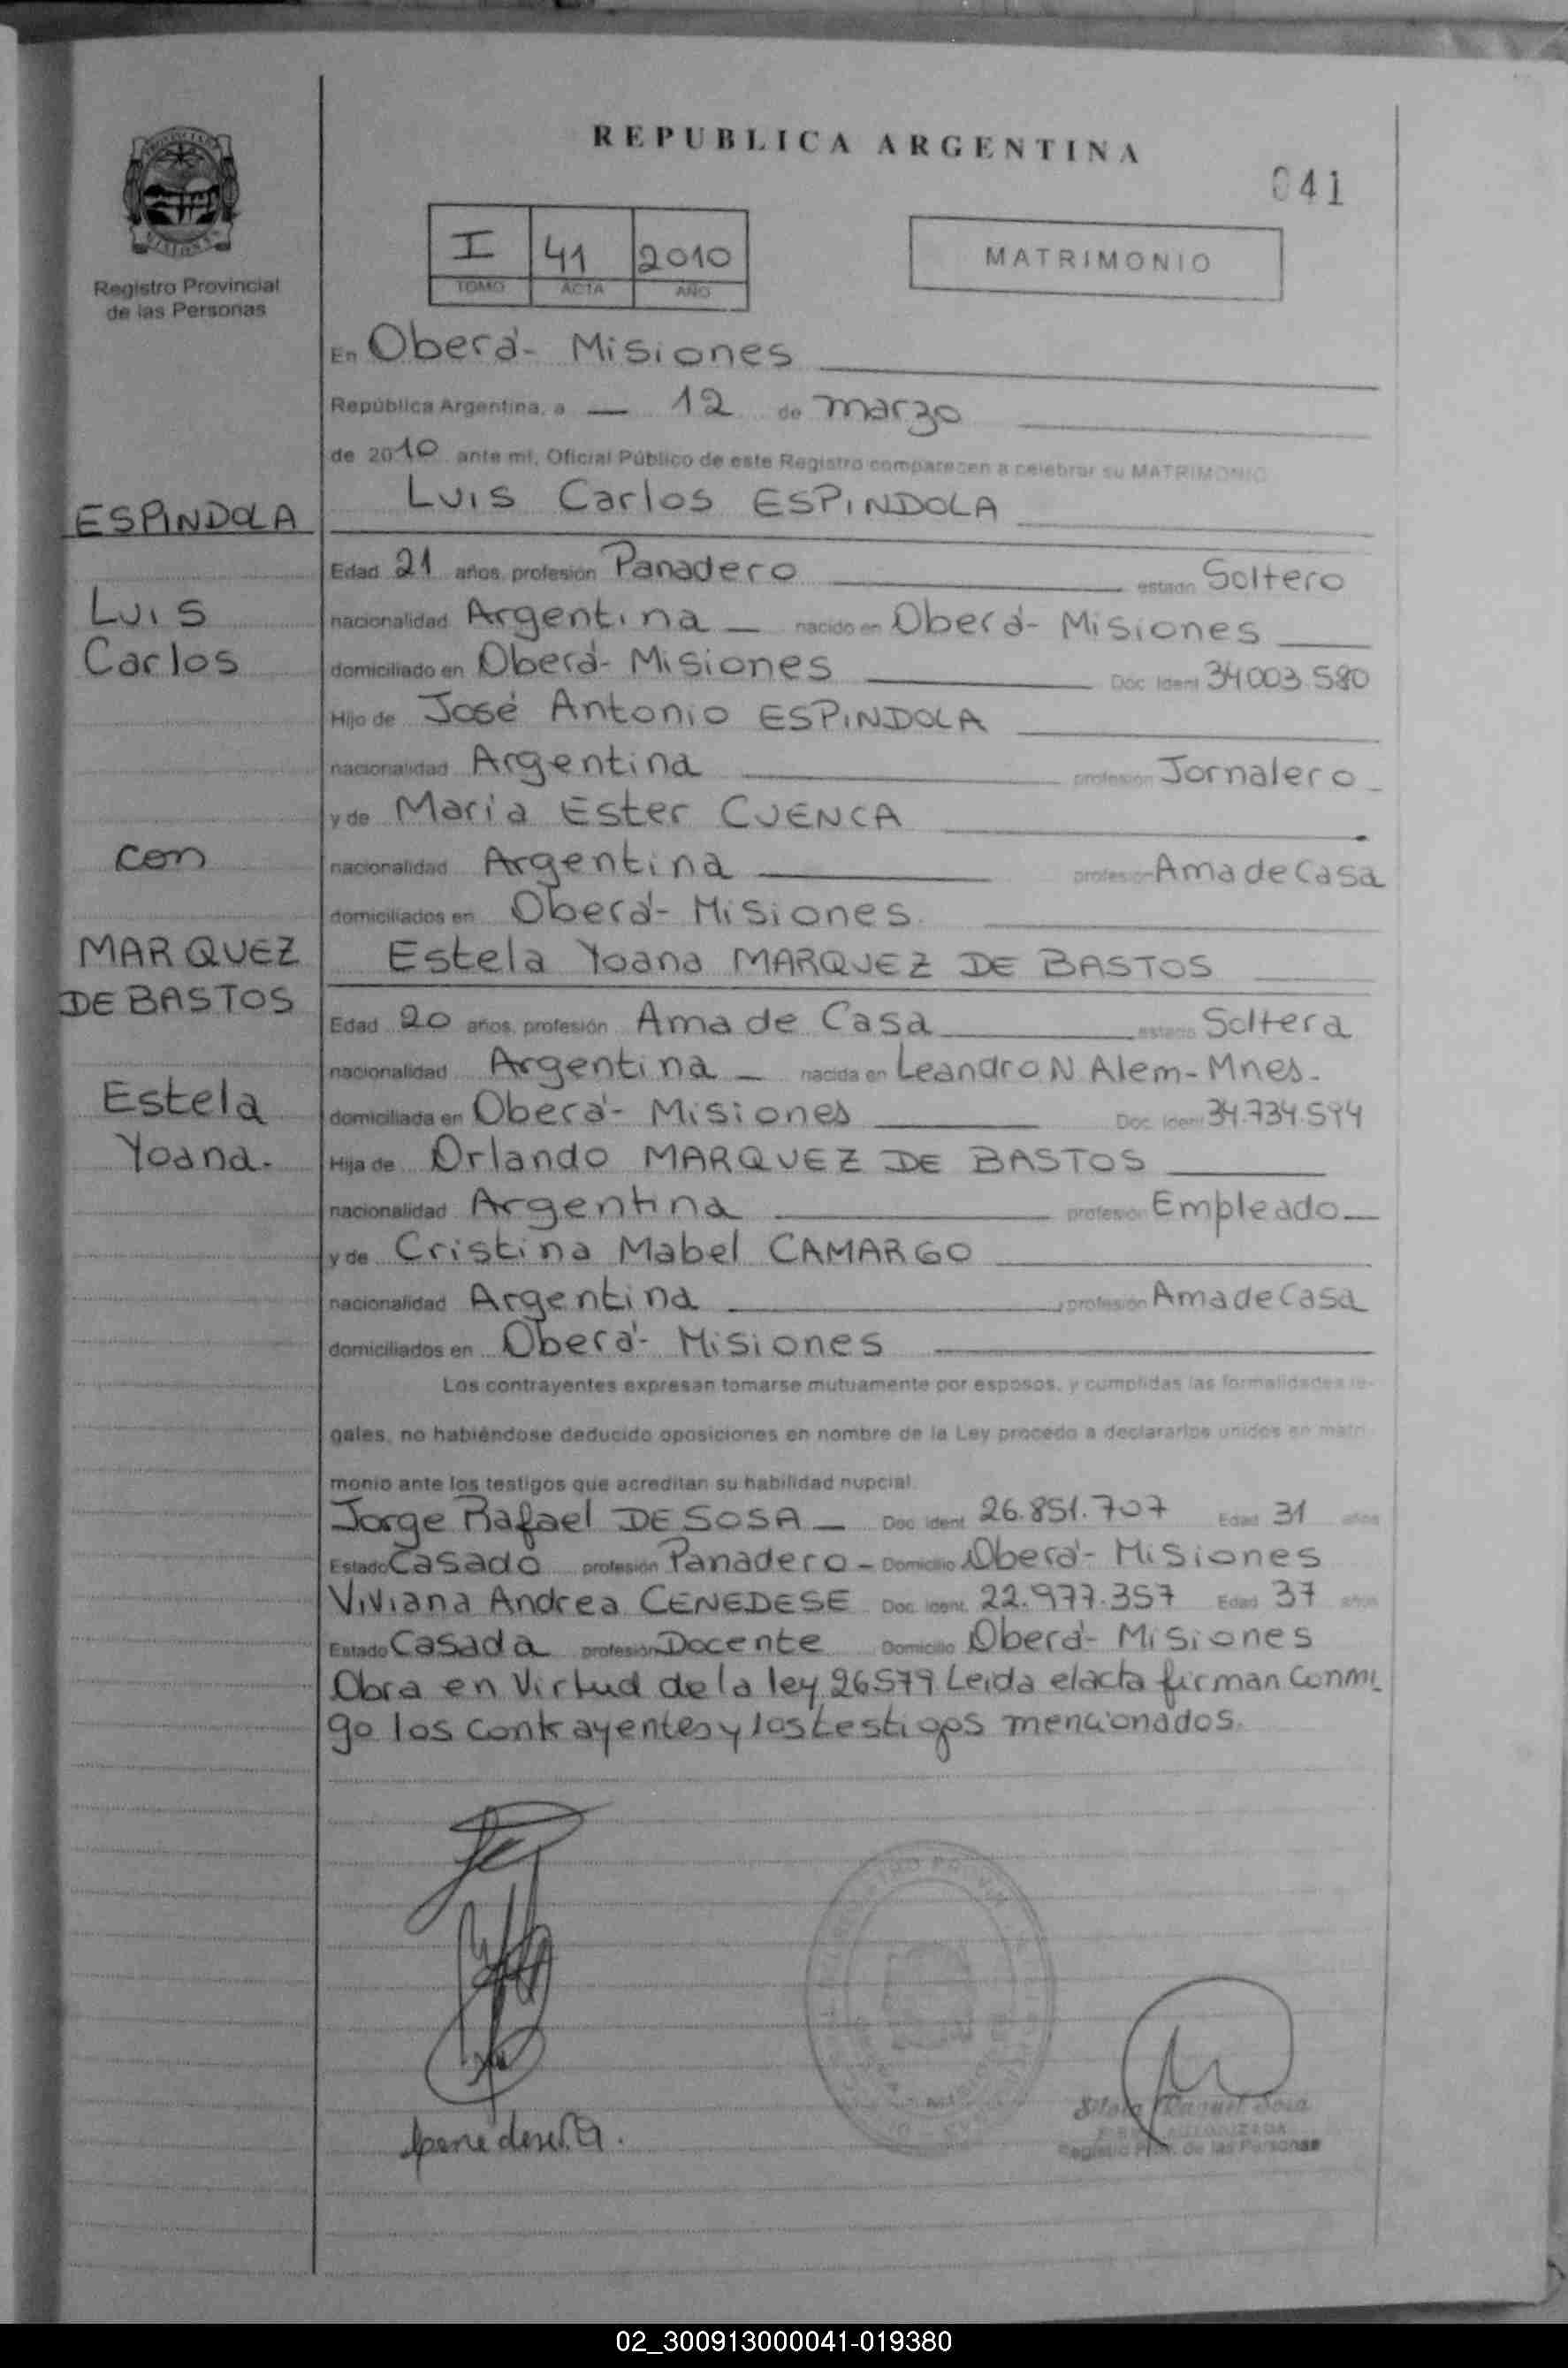 REPUBLICA ARGENTINA
041
I 41 2010
TOMO ACTA AÑO
MATRIMONIO
Registro Provincial
de las Personas
En Oberá- Misiones
República Argentina, a 12 de marzo
de 2010 ante mi, Oficial Público de este Registro comparecen a celebrar su MATRIMONIO
ESPINDOLA
Luis
Carlos
con
MARQUEZ
DE BASTOS
Estela
Yoana.
Luis Carlos ESPINDOLA
Edad 21 años, profesión Panadero estado Soltero
nacionalidad Argentina nacido en Oberá- Misiones
domiciliado en Oberá- Misiones Doc. Ident 34003.580
Hijo de José Antonio ESPINDOLA
nacionalidad Argentina profesión Jornalero
y de Maria Ester CUENCA
nacionalidad Argentina profesión Ama de Casa
domiciliados en Oberá- Misiones.
Estela Yoana MARQUEZ DE BASTOS
Edad 20 años, profesión Ama de Casa estado Soltera
nacionalidad Argentina nacida en Leandro N Alem- Mnes.
domiciliada en Oberá- Misiones Doc. Ident 34.734.594
Hija de Orlando MARQUEZ DE BASTOS
nacionalidad Argentina profesión Empleado
y de Cristina Mabel CAMARGO
nacionalidad Argentina profesión Ama de Casa
domiciliados en Oberá- Misiones
Los contrayentes expresan tomarse mutuamente por esposos, y cumplidas las formalidades le-
gales, no habiéndose deducido oposiciones en nombre de la Ley procedo a declararlos unidos en matri-
monio ante los testigos que acreditan su habilidad nupcial.
Jorge Rafael DE SOSA Doc. Ident. 26.851.707 Edad 31 años
Estado Casado profesión Panadero - Domicilio Oberá- Misiones
Viviana Andrea CENEDESE Doc. Ident. 22.977.357 Edad 37 años
Estado Casada profesión Docente Domicilio Oberá- Misiones
Obra en Virtud de la ley 26579 Leida el acta firman Conmi
go los contrayentes y los testigos mencionados.
Registro Prov. de las Personas
02_300913000041-019380